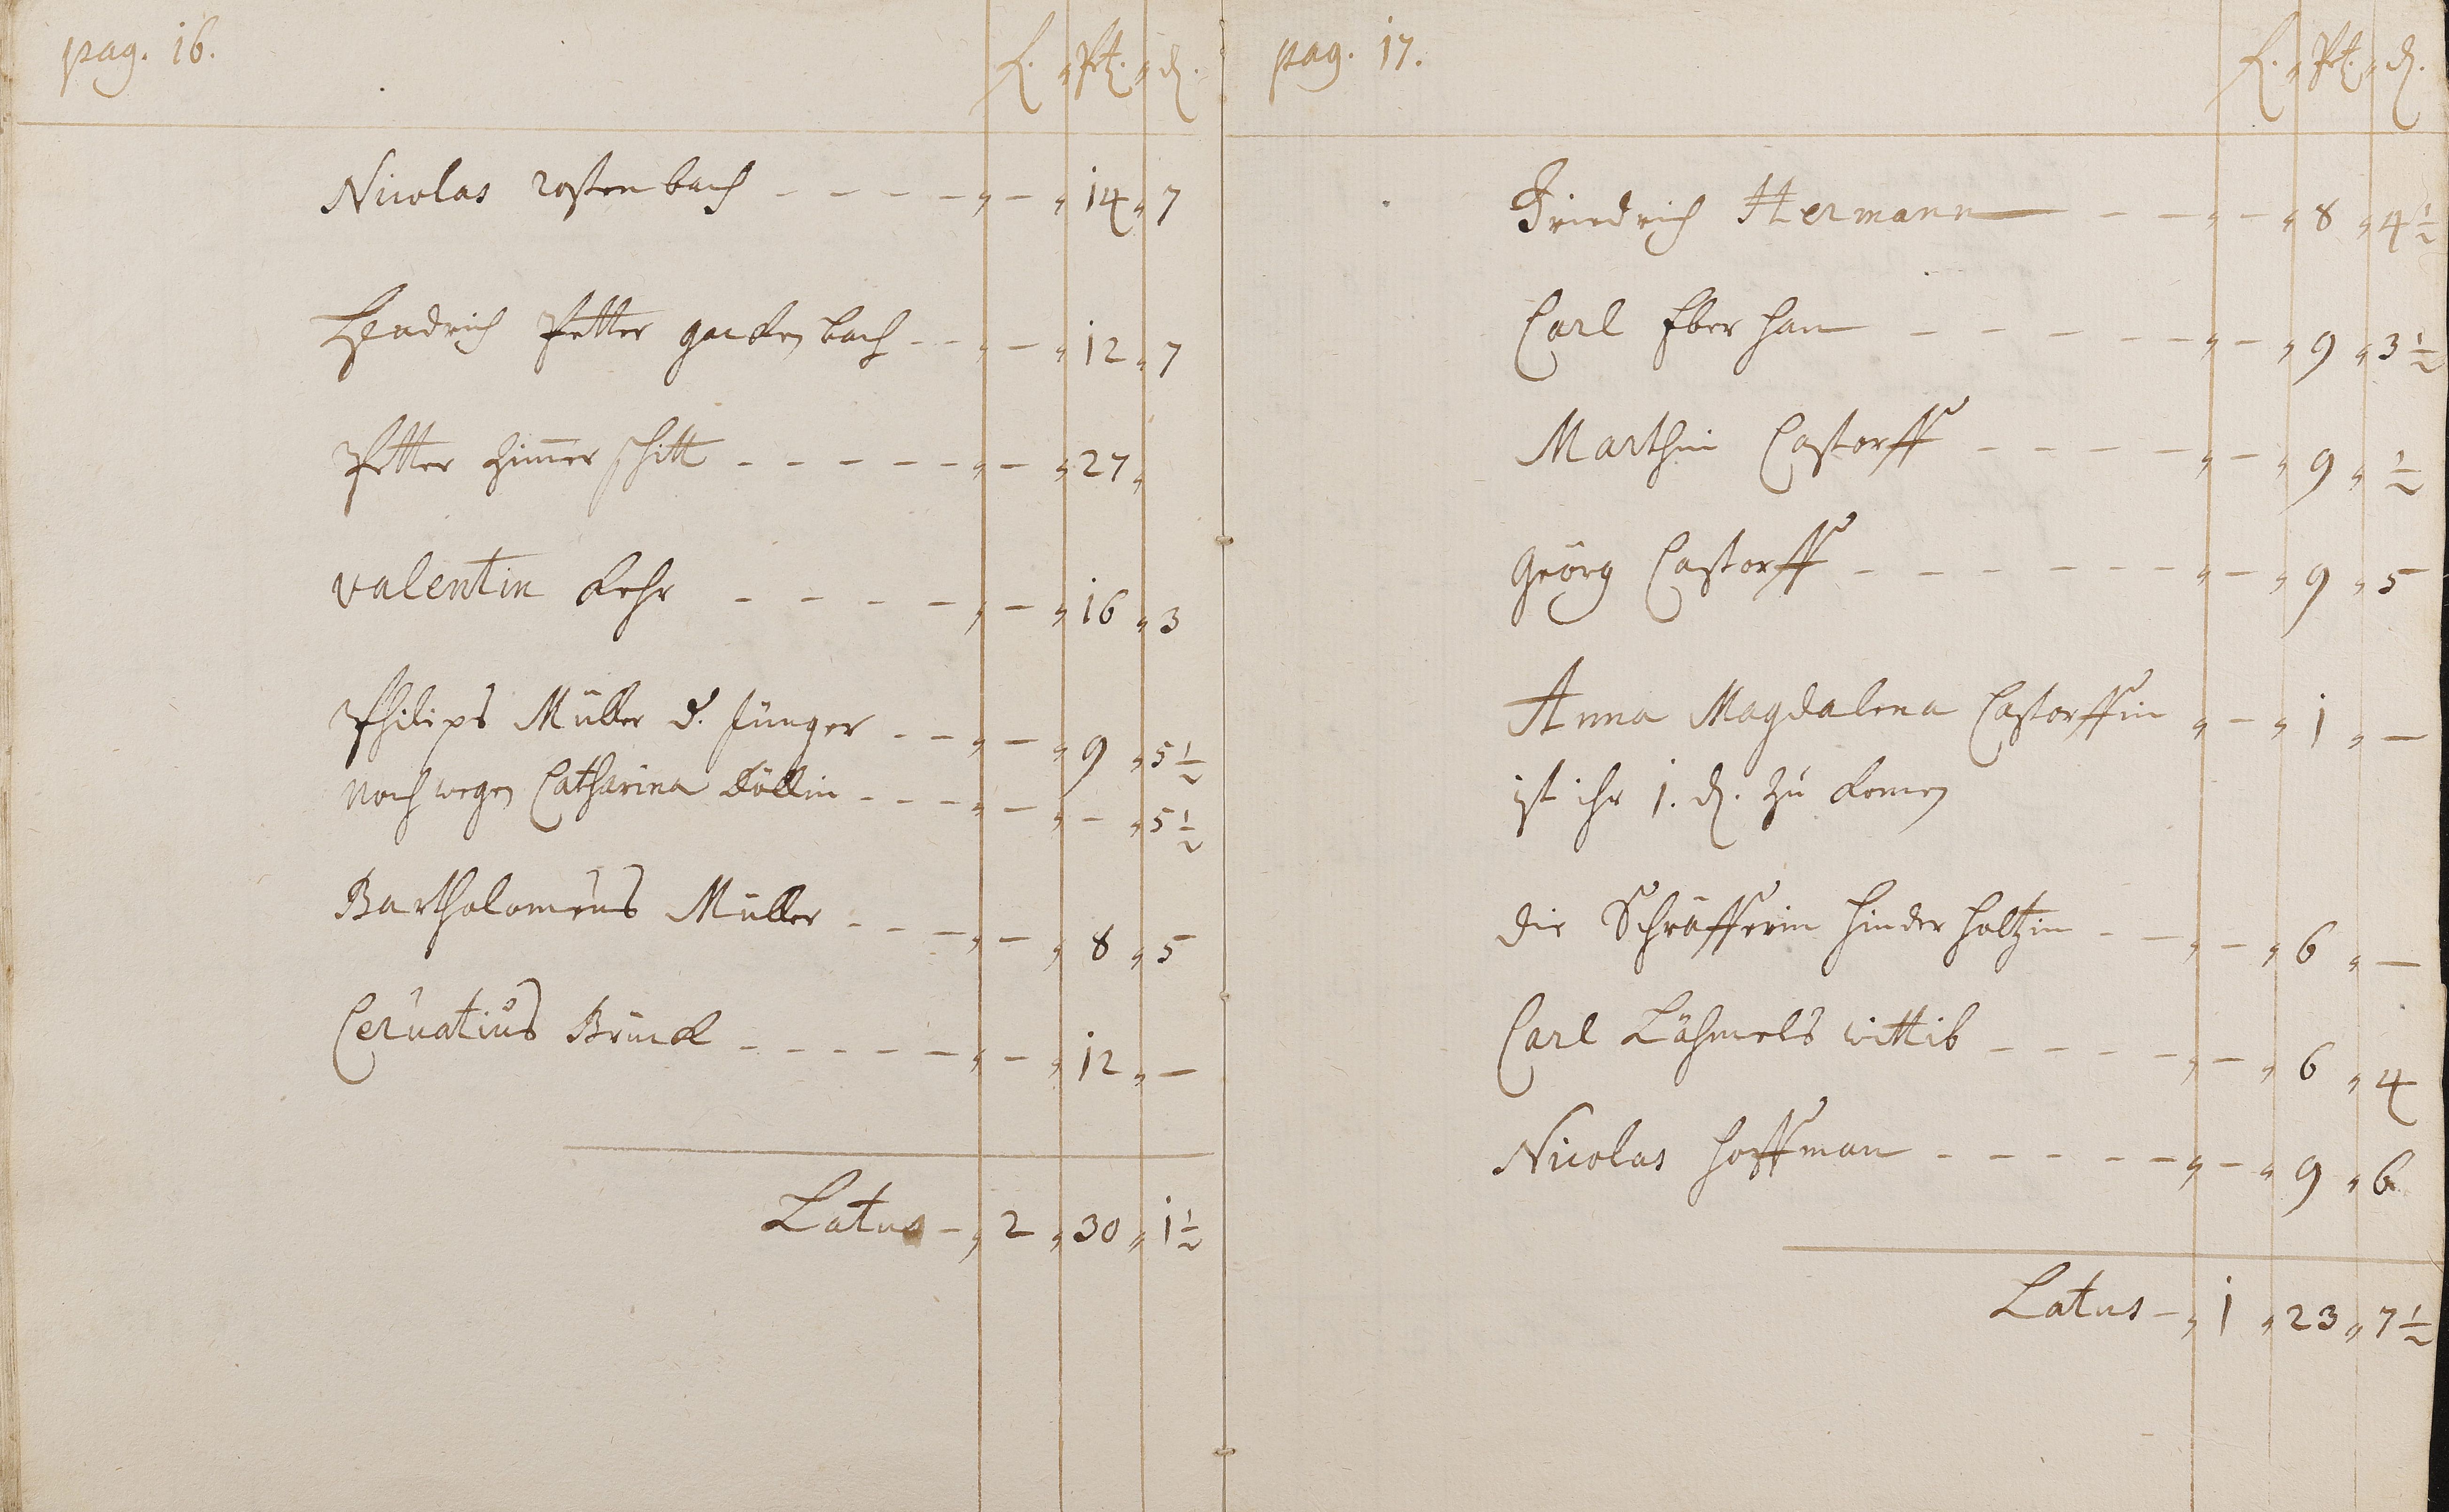 pag. 16.
fl. " Pet. " d.
Nicolas rosten bach - - - - " - " 14 " 7
Hendrich Petter gacken bach - - " - " 12 " 7
Petter Zimer schitt - - - - - " - " 27 "
Valentin Kehr - - - - " - " 16 " 3
Philips Müller d. Jünger - - " - " 9 " 5 1/2
Noch wegen Catharina Döllin - - - " - " - " 5 1/2
Bartholomeus Müller - - - " - " 8 " 5
Ceruatius Brück - - - - - " - " 12 " -
Latus - " 2 " 30 " 1 1/2
pag. 17.
fl. " Pet. " d.
Friedrich Hermann - - " - " 8 " 4 1/2
Carl Eber han - - - - - " - " 9 " 3 1/2
Marthin Castorff - - - - " - " 9 " 1/2
Geörg Castorff - - - - - - " - " 9 " 5
Anna Magdalena Castorffin " - " 1 " -
ist ihr 1. d. zu komen
die Schröfferin hinder holtzin - - " - " 6 " -
Carl Löhmels wittib - - - - " - " 6 " 4
Nicolas hoffman - - - - - " - " 9 " 6
Latus - " 1 " 23 " 7 1/2